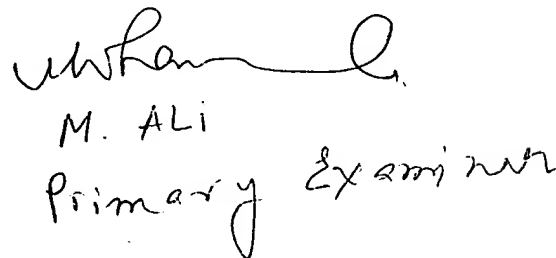 M. ALi
Primary Examiner